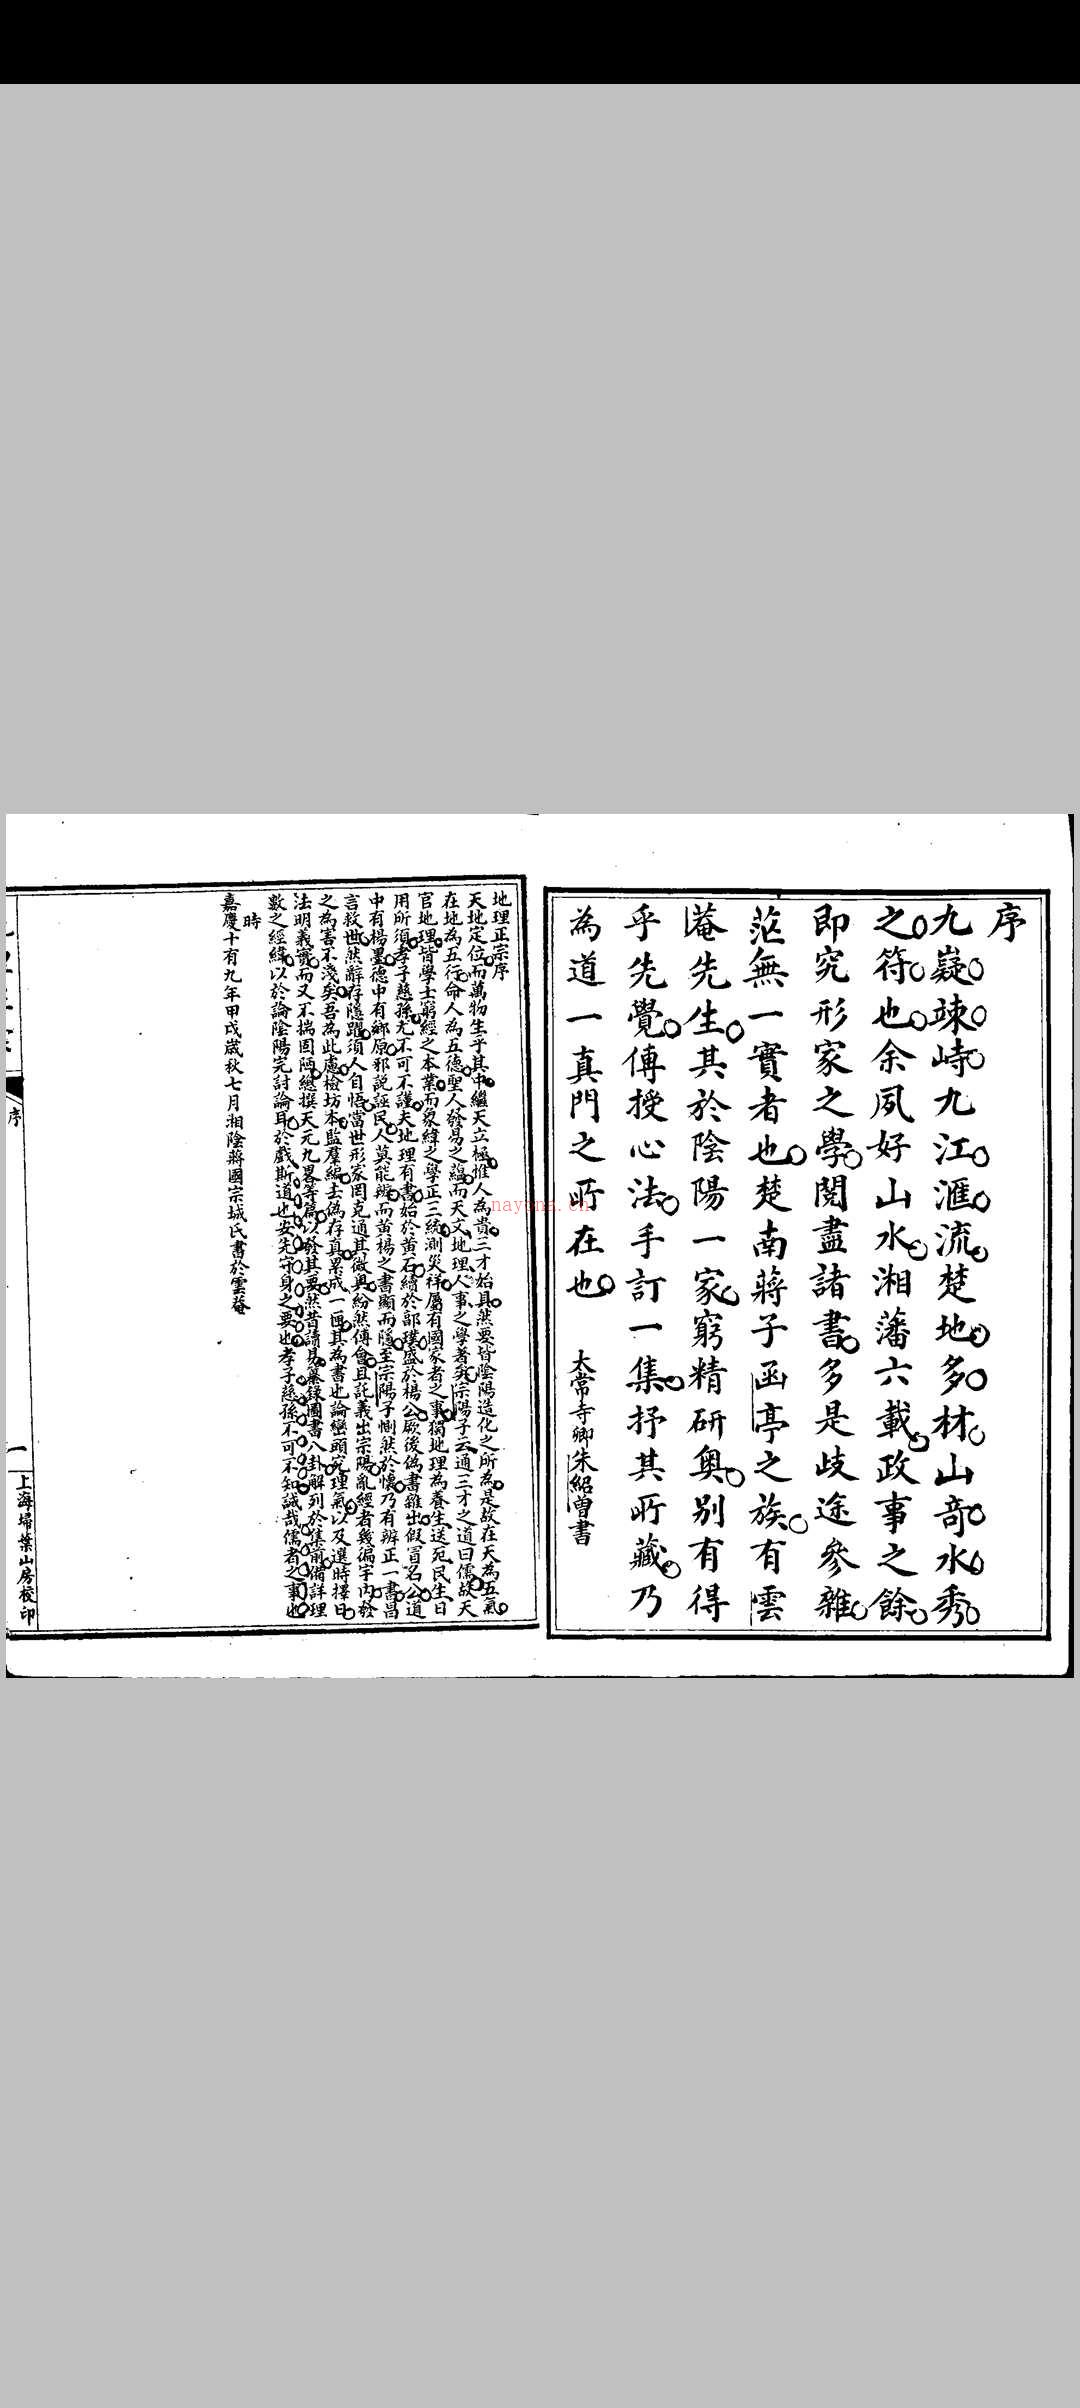 序
九嶷竦峙九江滙流楚地多材山竒水秀
之符也余夙好山水湘藩六載政事之餘
即究形家之學閱盡諸書多是歧途參雜
茫無一實者也楚南蔣子函亭之族有雲
菴先生其於陰陽一家窮精研奧别有得
乎先覺傳授心法手訂一集抒其所藏乃
為道一真門之所在也
太常寺卿朱紹曾書
地理正宗序
天地定位而萬物生乎其中繼天立極惟人為貴三才始具然要皆陰陽造化之所為是故在天為五氣
在地為五行命人為五德聖人發易之蘊而天文地理人事之學著矣宗陽子云通三才之道曰儒故天
官地理皆學士窮經之本業而象緯之學正三統測災祥屬有國家者之事獨地理為養生送死民生日
用所須孝子慈孫尤不可不謹夫地理有書始於黄石續於郭璞盛於楊公厥後偽書雜出假冒名公道
中有楊墨德中有鄉原邪説誣民人莫能辨而黄楊之書顯而隱至宗陽子惻然於懷乃有辨正一書昌
言救世然辭存隱躍須人自悟當世形家罔克通其微奥紛然傅會且託義出宗陽亂經者幾徧宇内於
之為害不淺矣吾為此慮檢坊本監羣編去偽存真累成一匝其為書也論巒頭究理氣以及選時擇日
法明義實而又不揣固陋總撰天元九畧等篇以發其要然昔讀易纂録圖書八卦解列於集前備詳理
數之經緯以於論陰陽完討論耳於戲斯道也安先守身之要也孝子慈孫不可不知誠哉儒者之事也
時
嘉慶十有九年甲戌歲秋七月湘陰蔣國宗城氏書於雲菴
序
一
上海埽葉山房校印
nayona.cn